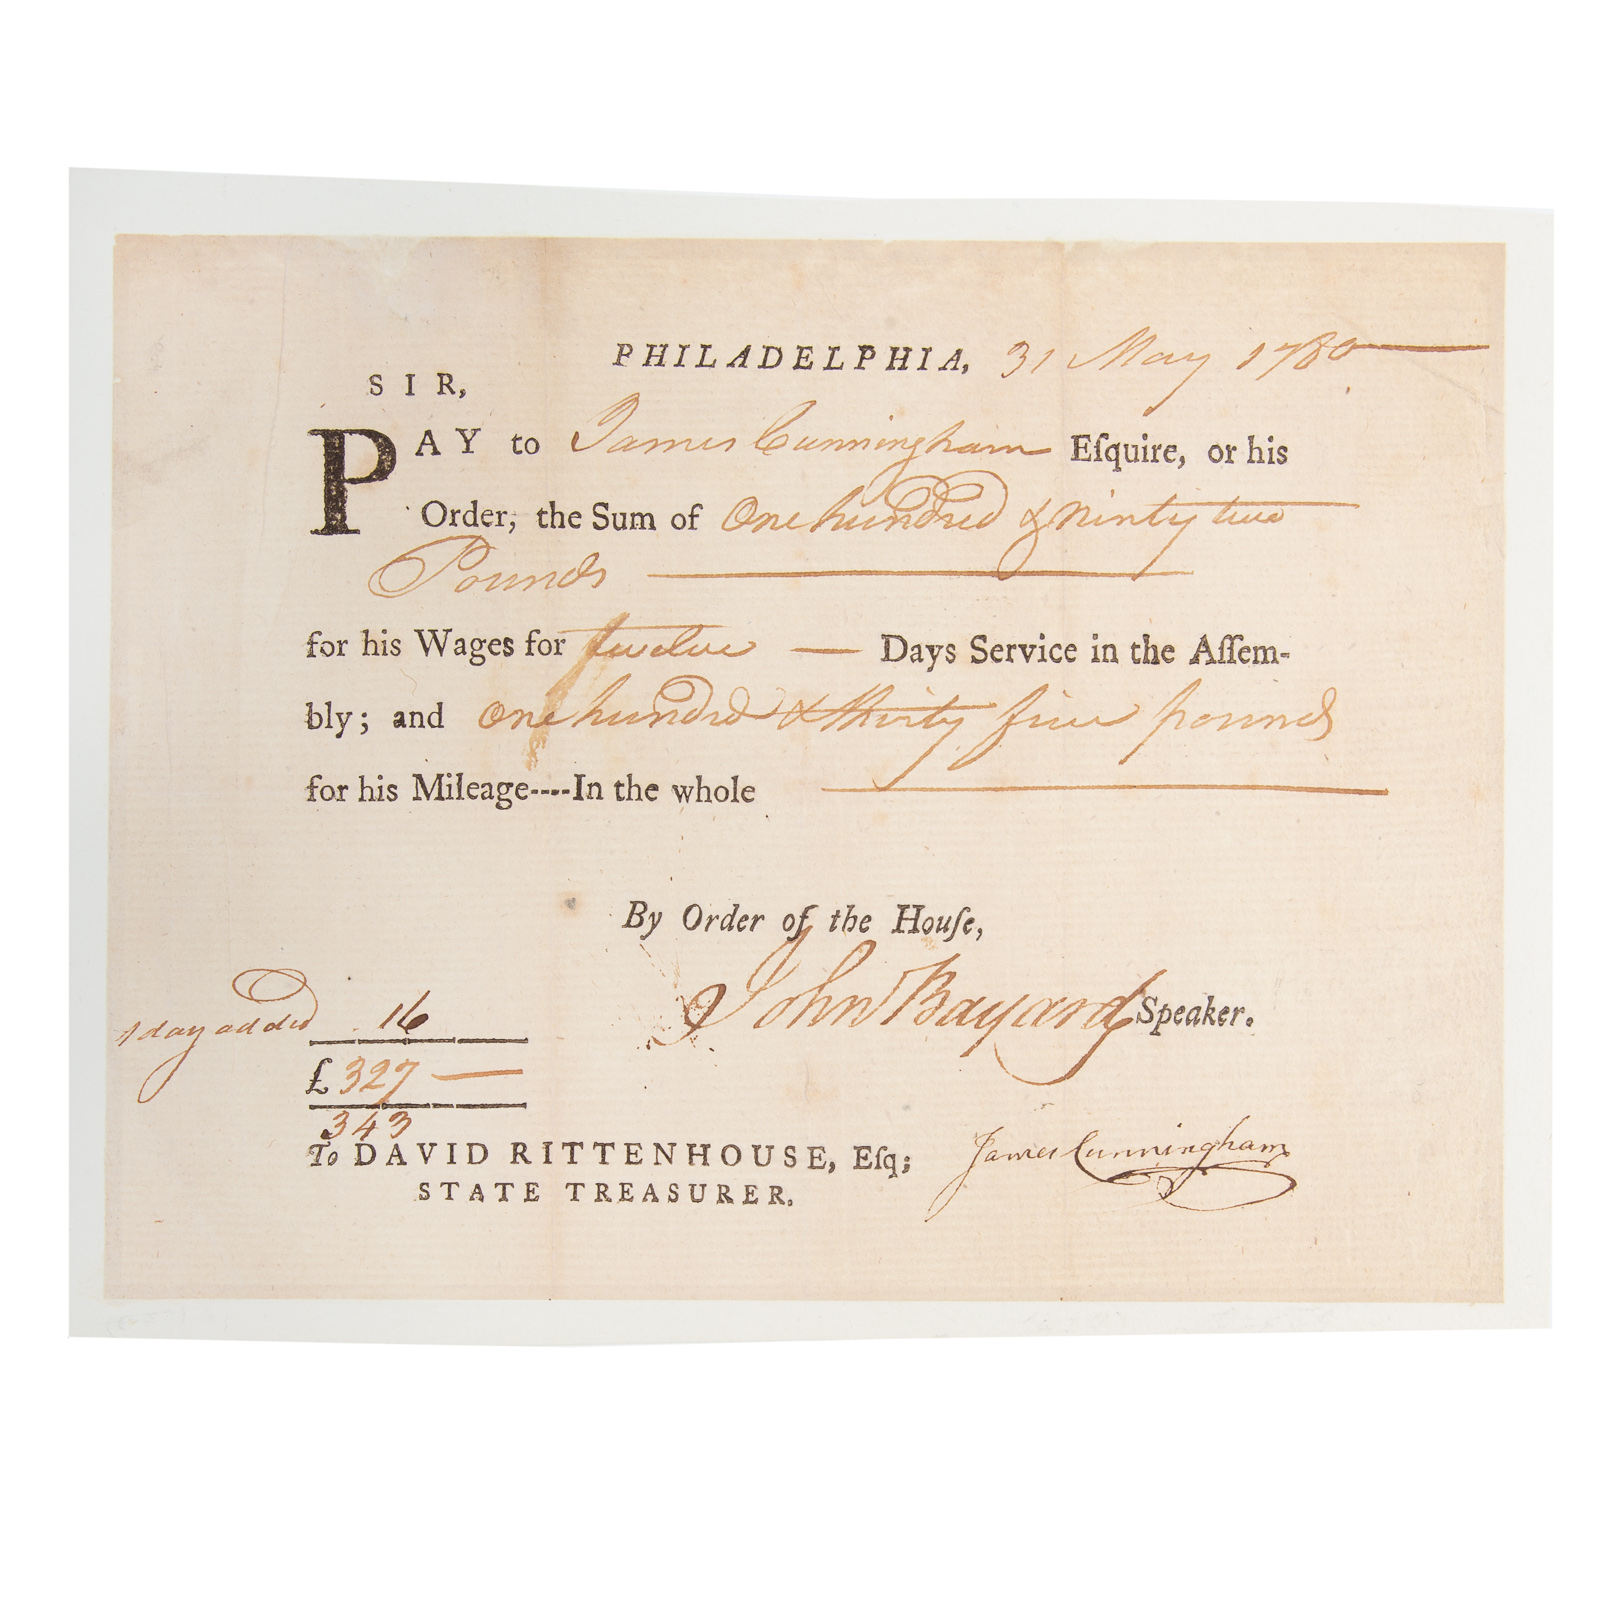 PHILADELPHIA, 31 May 1780
SIR,
PAY to James Cunningham Eſquire, or his
Order, the Sum of One hundred & ninty two
Pounds
for his Wages for twelve — Days Service in the Aſſem-
bly; and One hundred & thirty five pounds
for his Mileage----In the whole
By Order of the Houſe,
John Bayard Speaker.
1 day added 16
£ 327 —
343
To DAVID RITTENHOUSE, Eſq;
STATE TREASURER.
James Cunningham